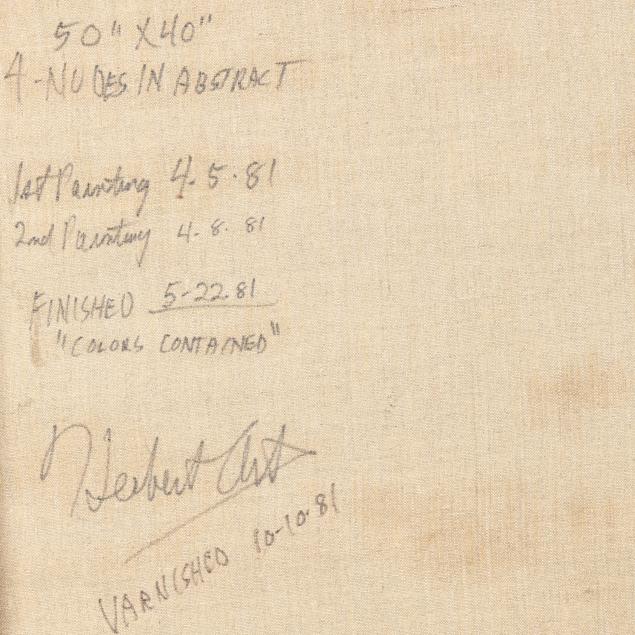 50" X 40"
4-NUDES IN ABSTRACT
1st Painting 4.5.81
2nd Painting 4.8.81
FINISHED 5-22.81
"COLORS CONTAINED"
Herbert Art
VARNISHED 10-10.81